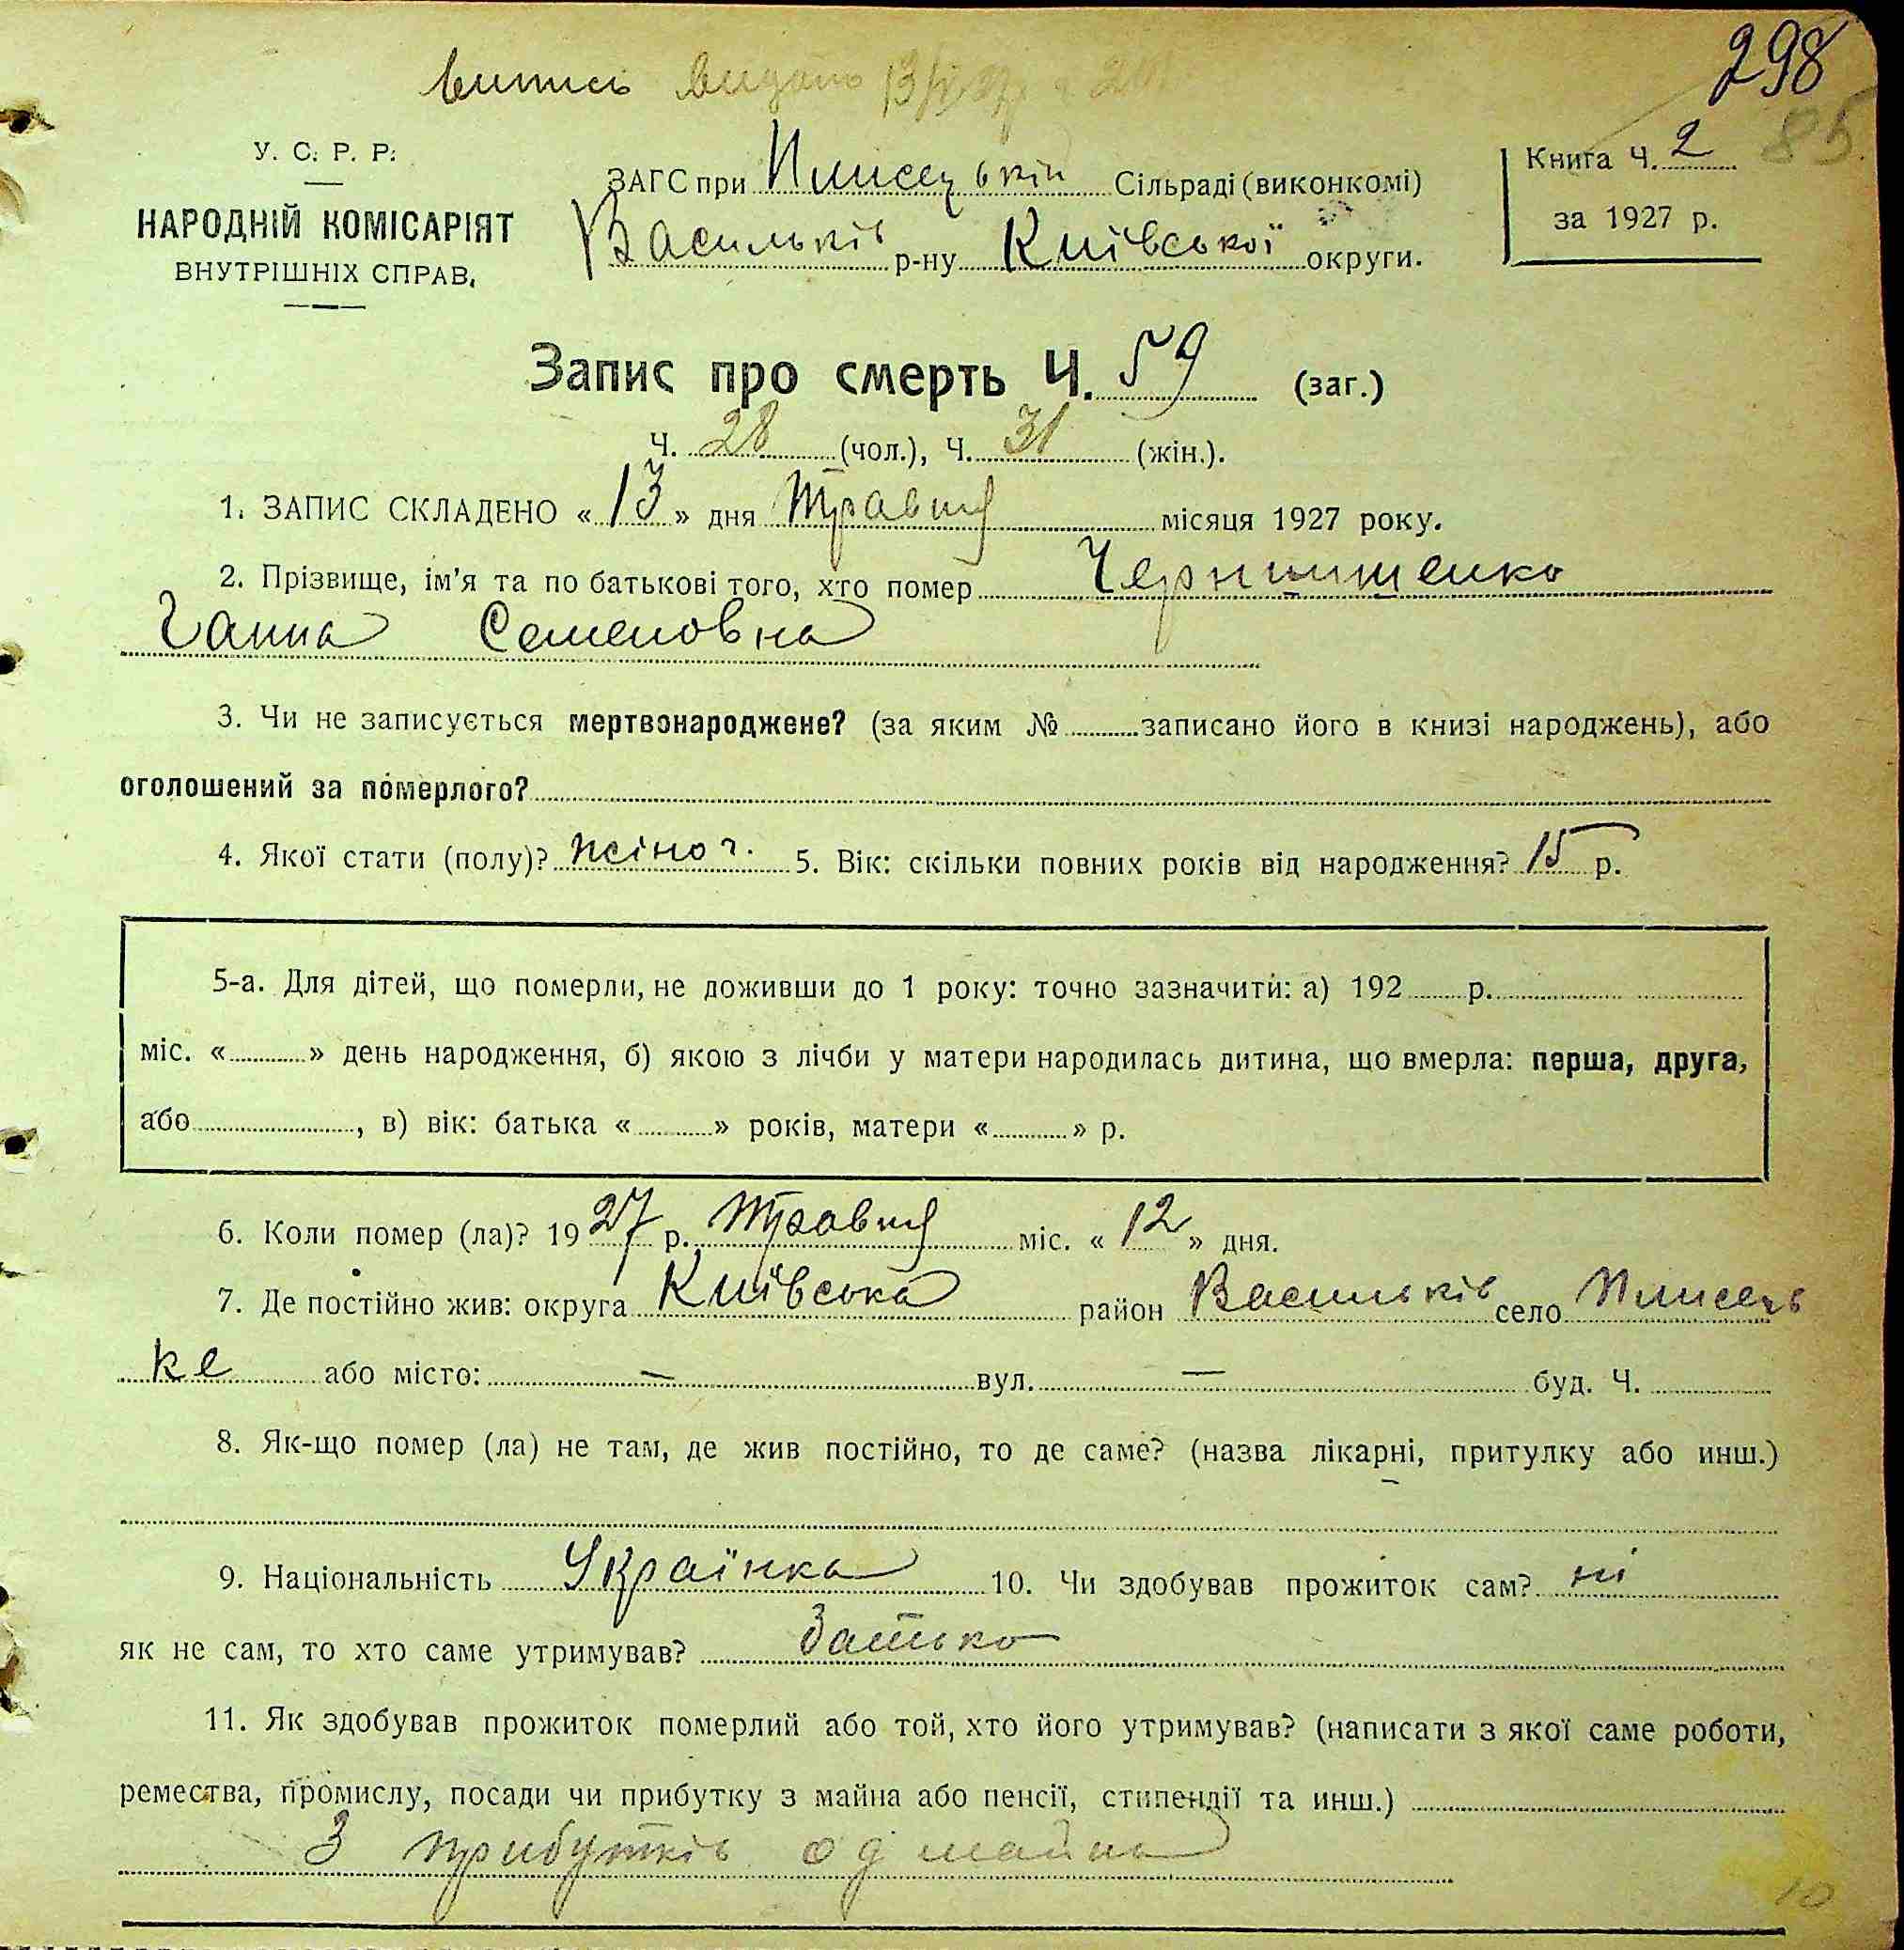 298
Витпись видано 13/V 27р.
85
У. С. Р. Р.
НАРОДНІЙ КОМІСАРІЯТ
ВНУТРІШНІХ СПРАВ.
ЗАГС при Плисецькій Сільраді (виконкомі)
Васильків р-ну Київської округи.
Книга Ч. 2
за 1927 р.
Запис про смерть Ч. 59 (заг.)
Ч. 28 (чол.), Ч. 31 (жін.).
1. ЗАПИС СКЛАДЕНО « 13 » дня Травня місяця 1927 року.
2. Прізвище, ім'я та по батькові того, хто помер Чернишенко
Ганна Семеновна
3. Чи не записується мертвонароджене? (за яким № записано його в книзі народжень), або
оголошений за померлого?
4. Якої стати (полу)? жіноч. 5. Вік: скільки повних років від народження? 15 р.
5-а. Для дітей, що померли, не доживши до 1 року: точно зазначити: а) 192 р.
міс. « » день народження, б) якою з лічби у матери народилась дитина, що вмерла: перша, друга,
або , в) вік: батька « » років, матери « » р.
6. Коли помер (ла)? 1927 р. Травня міс. « 12 » дня.
7. Де постійно жив: округа Київська район Васильків село Плисець
ке або місто: — вул. — буд. Ч.
8. Як-що помер (ла) не там, де жив постійно, то де саме? (назва лікарні, притулку або инш.)
9. Національність Українка 10. Чи здобував прожиток сам? ні
як не сам, то хто саме утримував? батько
11. Як здобував прожиток померлий або той, хто його утримував? (написати з якої саме роботи,
ремества, промислу, посади чи прибутку з майна або пенсії, стипендії та инш.)
З прибутків од майна
10